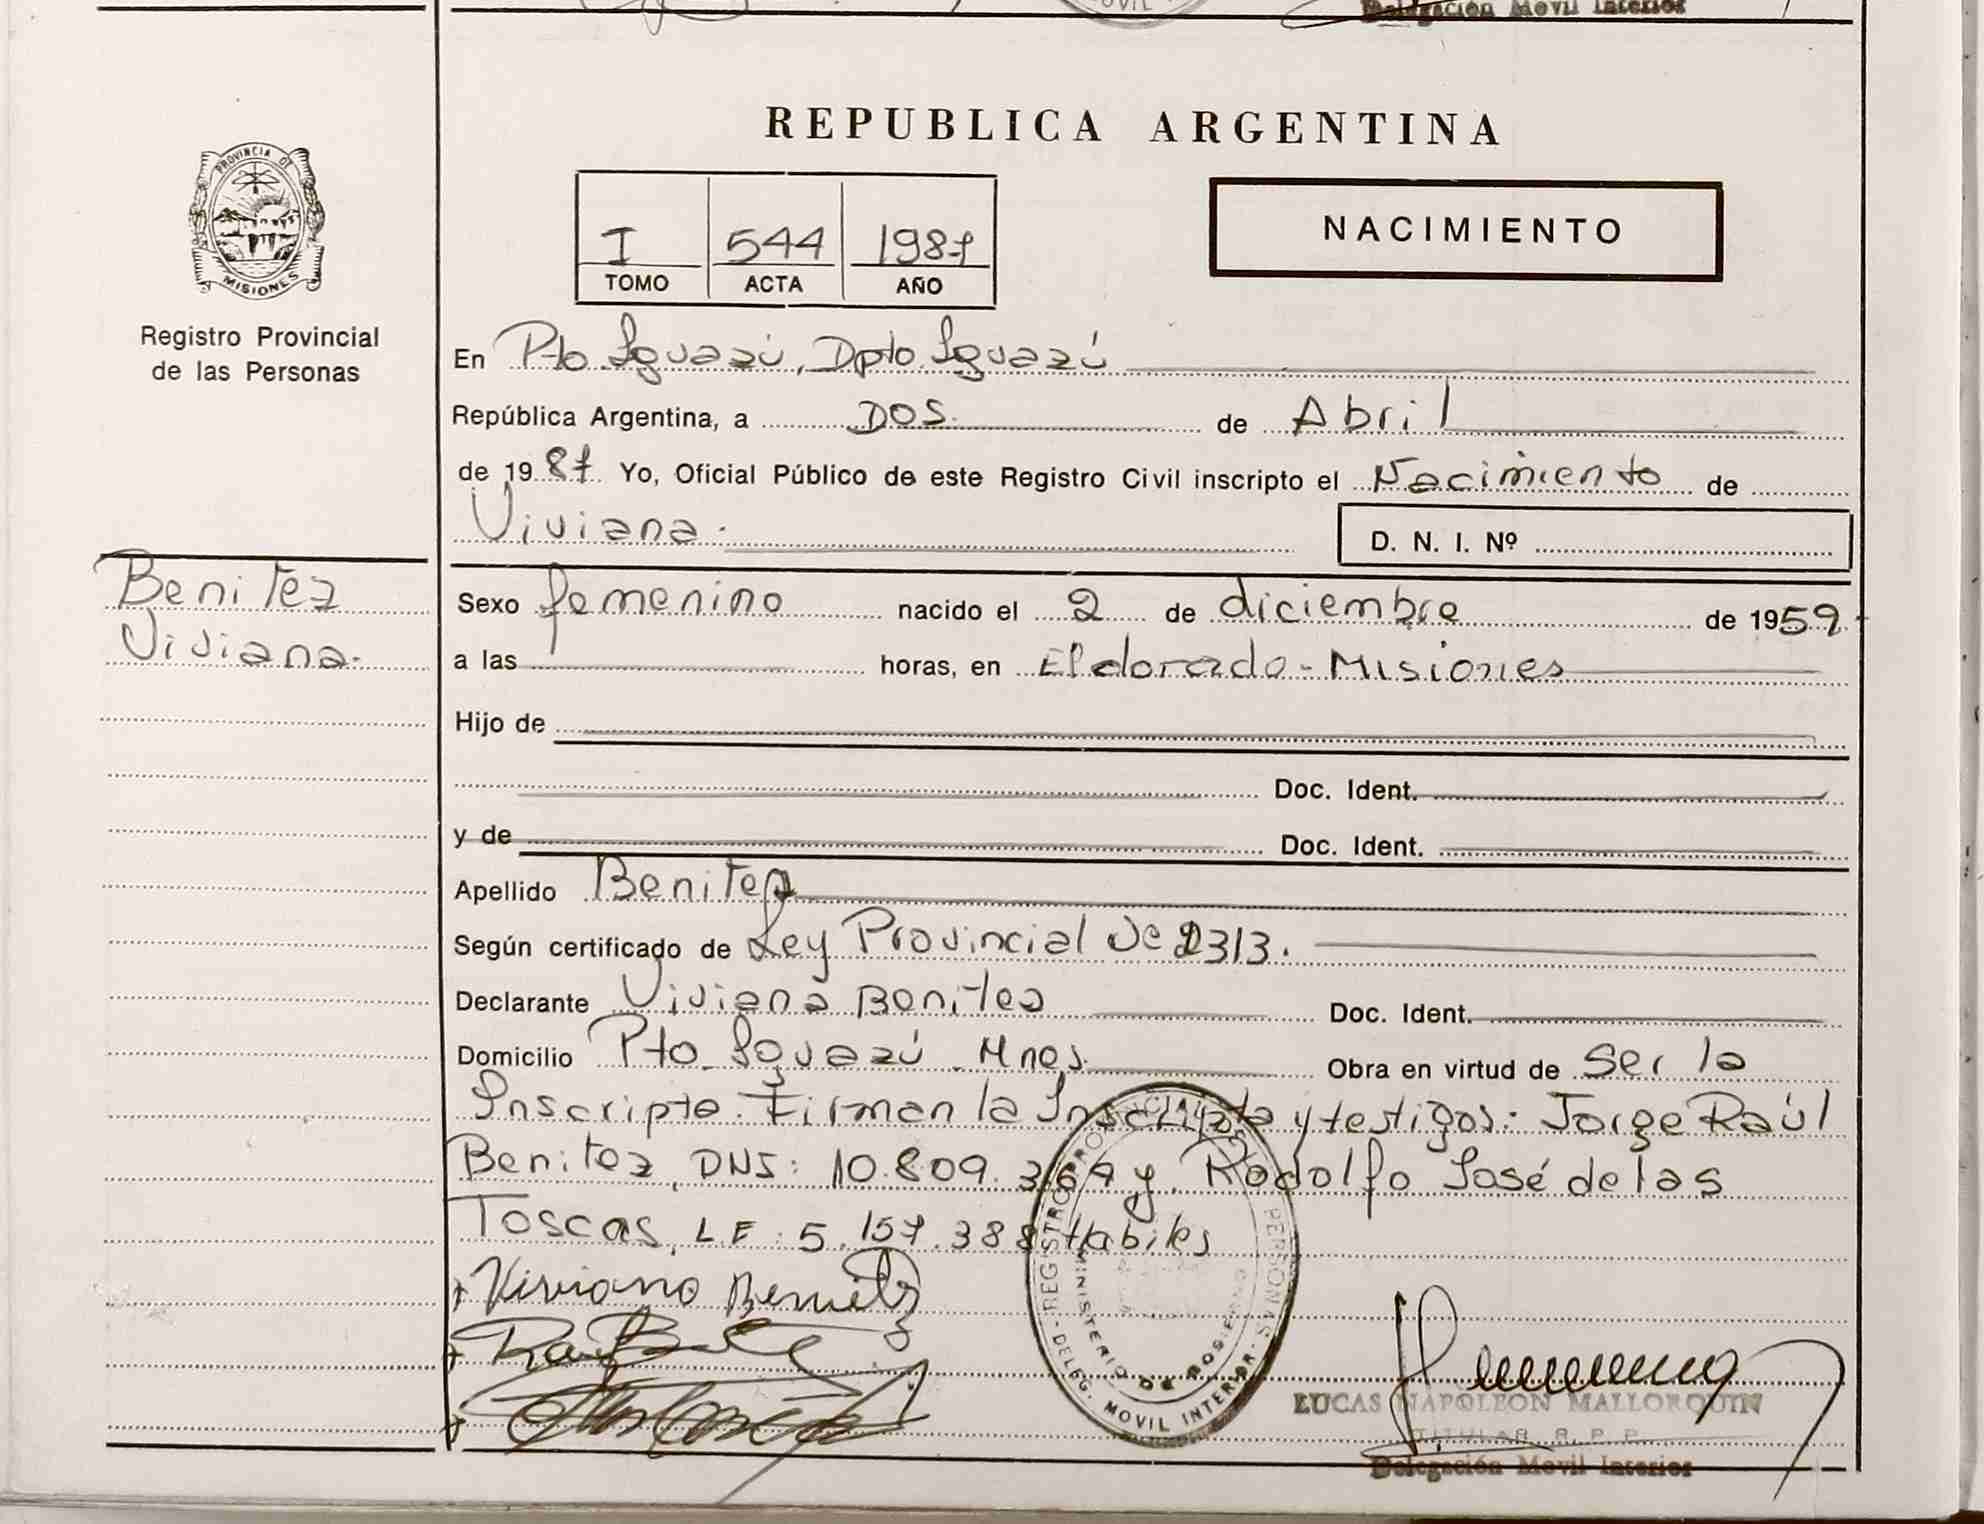 Delegación Movil Interior
PROVINCIA DE
MISIONES
Registro Provincial
de las Personas
REPUBLICA ARGENTINA
I 544 1987
TOMO ACTA AÑO
NACIMIENTO
En Pto. Iguazú, Dpto. Iguazú
República Argentina, a DOS. de Abril
de 1987 Yo, Oficial Público de este Registro Civil inscripto el Nacimiento de
Viviana.
D. N. I. Nº
Benitez
Viviana.
Sexo femenino nacido el 2 de diciembre de 1959
a las horas, en Eldorado - Misiones
Hijo de
Doc. Ident.
y de Doc. Ident.
Apellido Benitez
Según certificado de Ley Provincial de 2313.
Declarante Viviana Benitez Doc. Ident.
Domicilio Pto. Iguazú - Mnes. Obra en virtud de Ser la
Inscripta. Firman la Inscripta y testigos: Jorge Raúl
Benitez, DNI: 10.809.369 y Rodolfo José de las
Toscas, LE: 5.157.388 Habiles
Viviana Benitez
REGISTRO PROVINCIAL PERSONAS
MINISTERIO DE GOBIERNO
DELEG. MOVIL INTERIOR
LUCAS NAPOLEON MALLORQUIN
TITULAR R. P. P.
Delegación Movil Interior